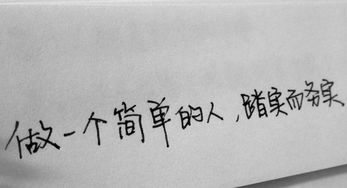 做一个简单的人,踏实而务实